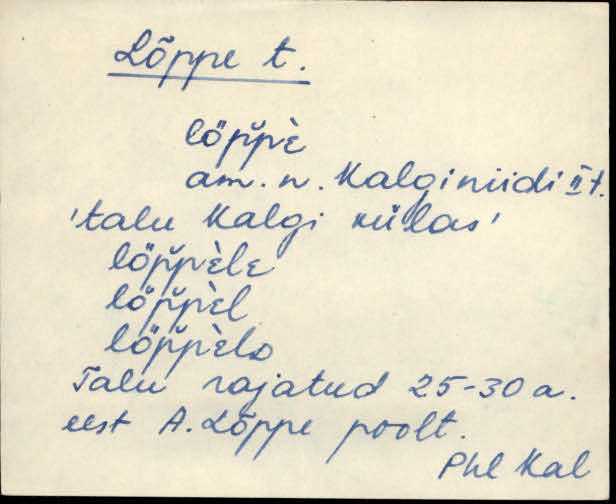 Lõppe t.
löp̆pè
am. n. Kalginiidi II t.
'talu Kalgi külas'
löp̆pèle
löp̆pèl
löp̆pèlᴅ
Talu rajatud 25-30 a.
eest A. Lõppe poolt.
Phl Kal